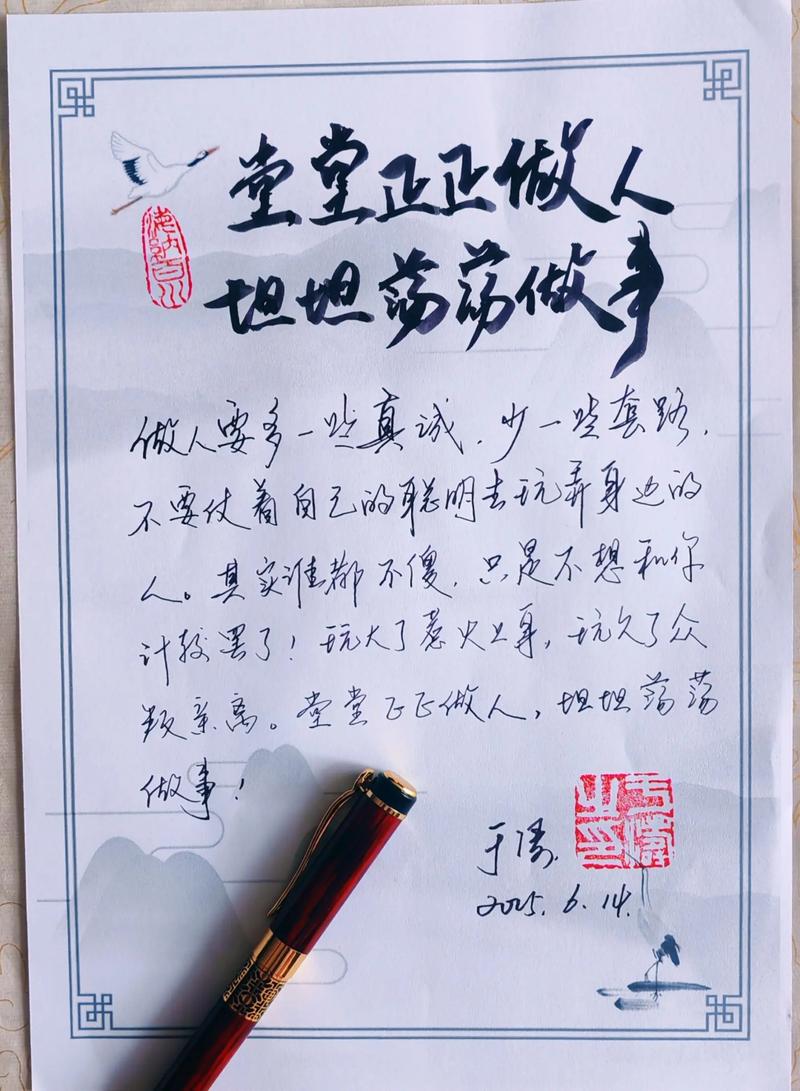 堂堂正正做人
坦坦荡荡做事
海纳百川
做人要多一些真诚，少一些套路，
不要仗着自己的聪明去玩弄身边的
人。其实谁都不傻，只是不想和你
计较罢了！玩大了惹火上身，玩久了众
叛亲离。堂堂正正做人，坦坦荡荡
做事！
于涛
2025.6.14.